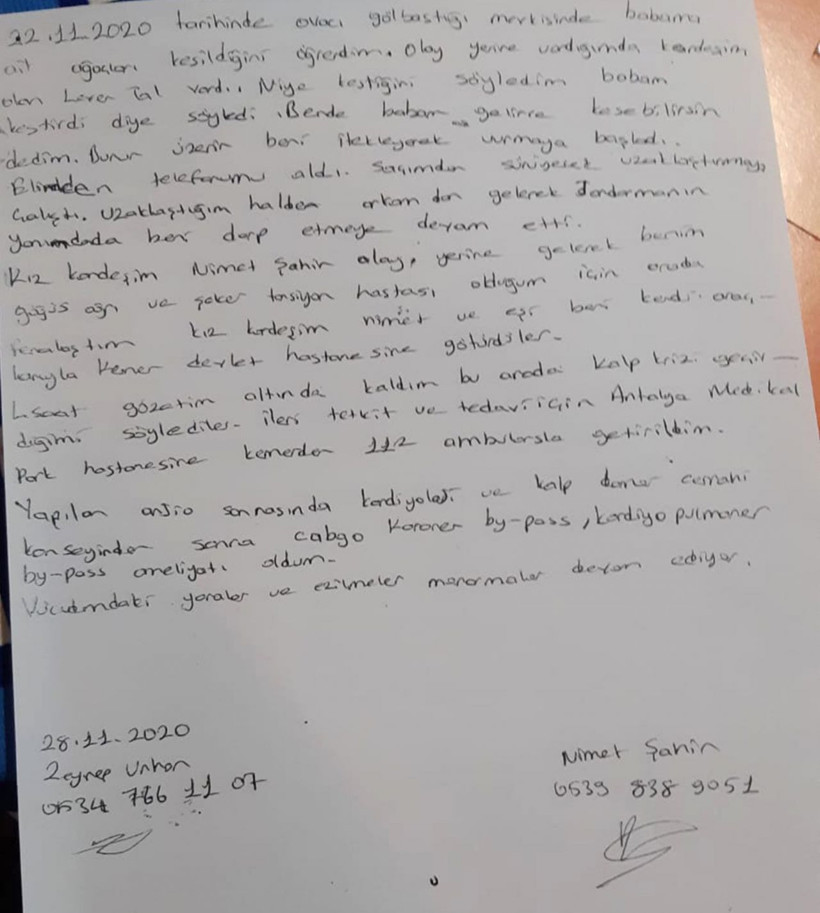 22.11.2020 tarihinde ovacı gölbastığı merkisinde babama
ait ağaçları kesildiğini öğrendim. Olay yerine vardığımda kardeşim
olan Levent Tal vardı. Niye kestiğini söyledim babam
kestirdi diye söyledi. Bende babam gelirse kesebilirsin
dedim. Bunun üzerin beni itekleyerek urmaya başladı.
Elimden telefonumu aldı. Saçımdan sürüyerek uzaklaştırmaya
çalıştı. Uzaklaştığım halden arkamdan gelerek Jandarmanın
yanındada beni darp etmeye devam etti.
Kız kardeşim Nimet Şahin olay yerine gelerek benim
göğüs ağrı ve şeker tansiyon hastası olduğum için orada
fenalaştım kız kardeşim nimet ve eşi beni kendi araç-
larıyla Kemer devlet hastanesine götürdüler.
saat gözetim altında kaldım bu arada kalp krizi geçir-
diğimi söylediler. ileri tetkit ve tedavi için Antalya Medikal
Park hastanesine kemerden 112 ambulansla getirildim.
Yapılan anjio sonrasında kardiyoloji ve kalp damar cerrahi
konseyinden sonra cabgo Koroner by-pass, kardiyo pulmoner
by-pass ameliyatı oldum.
Vücudumdaki yaralar ve ezilmeler morarmalar devam ediyor.
28.11.2020
Zeynep Unhan
0534 766 11 07
Nimet Şahin
0539 838 9051